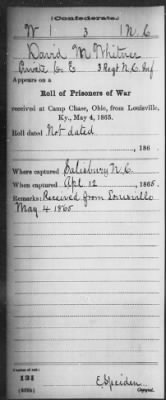 (Confederate.)
W 3 N.C.
David M. Whitner
Private Co. E, 3 Regt N.C. Inf.
Appears on a
Roll of Prisoners of War
received at Camp Chase, Ohio, from Louisville,
Ky., May 4, 1865.
Roll dated Not dated
, 186
Where captured Salisbury N.C.
When captured Apl 12, 1865.
Remarks: Received from Louisville
May 4 1865
Number of roll:
131
E. Speiden
Copyist.